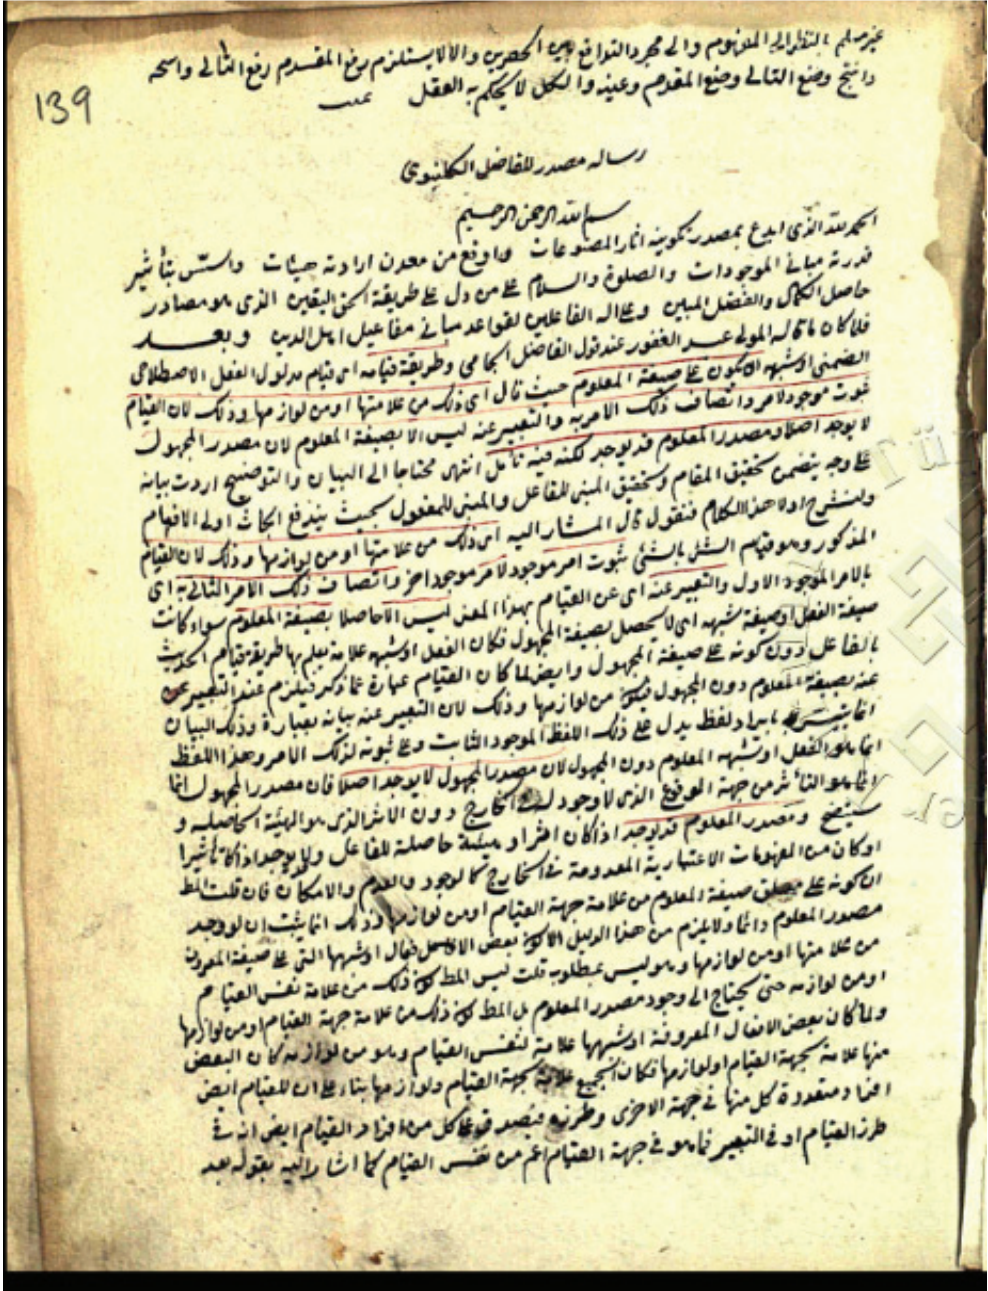 غير مسلم بالنظر الى المفهوم والى مجرد التوافق بين الحصرين والا لايستلزم رفع المقدم رفع التالى
وانتج وضع التالى وضع المقدم وعينه والكل لا يحكم به العقل
139
رساله مصدر للفاضل الكلنبوى
بسم الله الرحمن الرحيم
الحمد لله الذى ابدع بمصدر تكوينه اثار المصنوعات واوقع من معدن ارادته واسس بتأثير
قدرته مبانى الموجودات والصلوة والسلام على من دل على طريقة الحق اليقين الذى هو مصادر
حاصل الكمال والفضل المبين وعلى اله الفاعلين لقواعد مبانى مفاعيل اهل الدين وبعد
فلما كان ما قاله المولى عبد الغفور عند قول الفاضل الجامى وطريقة قيامه اى قيام مدلول الفعل الاصطلاحى
الضمنى او شبهه ان يكون على صيغة المعلوم حيث قال اى ذلك من علامتها او من لوازمها وذلك لان القيام
ثبوت موجود لامر واتصاف ذلك الامر به والتعبير عنه ليس الا بصيغة المعلوم لان مصدر المجهول
لا يوجد اصلا ومصدر المعلوم قد يوجد لكنه فيه تأمل انتهى محتاجا الى البيان والتوضيح اردت بيانه
على وجه يتضمن تحقيق المقام وتحقيق المبنى للفاعل والمبنى للمفعول بحيث يندفع ابحاث اولى الافهام
ولنشرح اولا هذا الكلام فنقول قال المشار اليه اى ذلك من علامتها او من لوازمها وذلك لان القيام
المذكور وهو قيام الشئ بالشئ ثبوت امر موجود لامر موجود اخر واتصاف ذلك الامر الثانى به اى
بالامر الموجود الاول والتعبير عنه اى عن القيام بهذا المعنى ليس الا حاصلا بصيغة المعلوم سواء كانت
صيغة الفعل او صيغة شبهه اى لا يحصل بصيغة المجهول فكان الفعل او شبهه علامة يعلم بها طريقة قيام الحدث
بالفاعل دون كونه على صيغة المجهول وايضا لما كان القيام عبارة عما ذكر فيلزم عند التعبير عن
عنه بصيغة المعلوم دون المجهول فيكون من لوازمها وذلك لان التعبير عنه بيانه بعبارة وذلك البيان
انما يتيسر بايراد لفظ يدل على ذلك اللفظ الموجود الثابت وعلى ثبوته لذلك الامر وهذا اللفظ
انما هو الفعل او شبهه المعلوم دون المجهول لان مصدر المجهول لا يوجد اصلا فان مصدر المجهول انما
انما هو التأثر من جهة الوقوع الذى لا وجود له فى الخارج دون الاثر الذى هو الهيئة الحاصلة و
سيتضح ومصدر المعلوم قد يوجد اذا كان اثرا وهيئة حاصلة للفاعل ولا يوجد اذا كان تأثيرا
او كان من المفهومات الاعتبارية المعدومة فى الخارج كالوجود والعدم والامكان فان قلت المط
ان كونه على مطلق صيغة المعلوم من علامة جهة القيام او من لوازمها وذلك انما يثبت ان لو وجد
مصدر المعلوم دائما ولا يلزم من هذا الدليل الا كون بعض الافعال او شبهها التى على صيغة المعروف
من علامتها او من لوازمها وهو ليس بمطلوب قلت ليس المط كون ذلك من علامة نفس القيام
او من لوازمه حتى يحتاج الى وجود مصدر المعلوم بل المط كون ذلك من علامة جهة القيام او من لوازمها
ولما كان بعض الافعال المعروفة او شبهها علامة لنفس القيام وهو من لوازمه كان البعض
منها علامة لجهة القيام او لوازمها فكان الجميع علامة لجهة القيام ولوازمها بناء على ان للقيام ايض
افراد متعددة كل منها فى جهة الاخرى وطرزه فيصدق على كل من افراد القيام ايض انه فى
طرز القيام او فى التعبير فما هو فى جهة القيام اعم من نفس القيام كما اشار اليه بقوله بعد